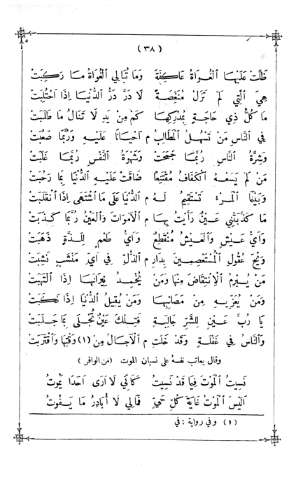 (٣٨)
ظلت عليها الغواة عاكفة وما تبالي الغواة ما ركبت
هي التي لم تزل منغصة لا در در الدنيا اذا احتلبت
ما كل ذي حاجة بمدركها كم من يد لا تنال ما طلبت
في الناس من تسهل المطالب م احيانا عليه وربما صعبت
وشرة الناس ربما جمحت وشهوة النفس ربما غلبت
من لم يسعه الكفاف مقتنعا ضاقت عليه الدنيا بما رحبت
وبينما المرء تستقيم له م الدنيا على ما اشتهى اذا انقلبت
ما كذبتني عين رأيت بها م الاموات والعين ربما كذبت
واي عيش والعيش منقطع واي طعم للذة ذهبت
ويح عقول المستعصمين بدار م الذل في اي منشب نشبت
من يبرم الانتقاض منها ومن يخمد نيرانها اذا التهبت
ومن يعزيه من مصائبها ومن يقيل الدنيا اذا نكبت
يا رب عين للشر جالبة فتلك عين تجلى بما جلبت
والناس في غفلة وقد خلت م الاجال من (١) وقتها واقتربت
وقال يعاتب نفسه على نسيان الموت (من الوافر)
نسيت الموت فيما قد نسيت كأني لا ارى احدا يموت
اليس الموت غاية كل حي فما لي لا ابادر ما يفوت
(١) وفي رواية : في